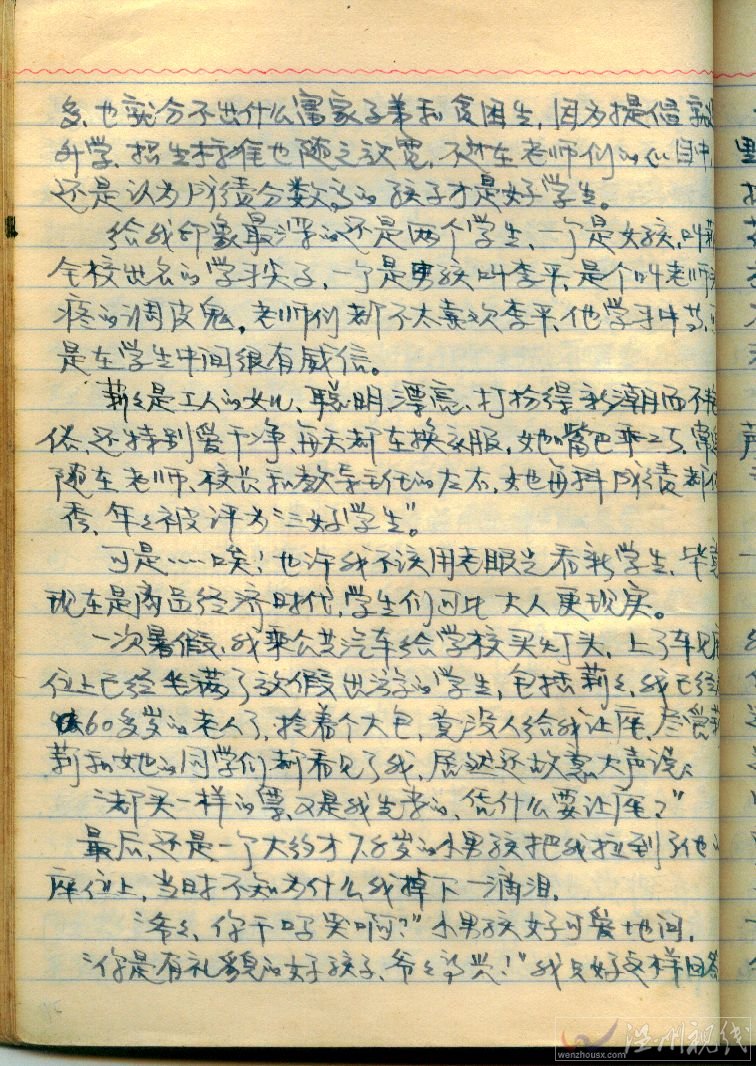 多,也就分不出什么富家子弟和贫困生,因为提倡
升学,招生标准也随之放宽,不过在老师们的心目中
还是认为成绩分数高的孩子才是好学生。
给我印象最深的还是两个学生,一个是女孩,叫莉
全校出名的学习尖子,一个是男孩叫李平,是个叫老师头
疼的调皮鬼,老师们都不太喜欢李平,他学习中等,
是在学生中间很有威信。
莉々是工人的女儿、聪明、漂亮、打扮得新潮而不
俗,还特别爱干净、每天都在换衣服,她嘴巴乖巧,常
随在老师、校长和教导主任的左右,她每科成绩都
秀,年々被评为“三好学生”。
可是……唉!也许我不该用老眼光看新学生,毕竟
现在是商品经济时代,学生们可比大人更现实。
一次暑假,我乘公共汽车给学校买灯头,上了车见
位上已经坐满了放假出游的学生,包括莉々,我已经
60多岁的老人了,拎着个大包,竟没人给我让座,尽管莉
莉和她的同学们都看见了我,居然还故意大声说:
“都买一样的票,又是我先来的,凭什么要让座?”
最后,还是一个大约才7.8岁的小男孩把我拉到了他
座位上,当时不知为什么我掉下一滴泪,
“爷々、你干吗哭啊?”小男孩好可爱地问,
“你是有礼貌的好孩子、爷々高兴!”我只好这样回答
温州视线
wenzhousx.com